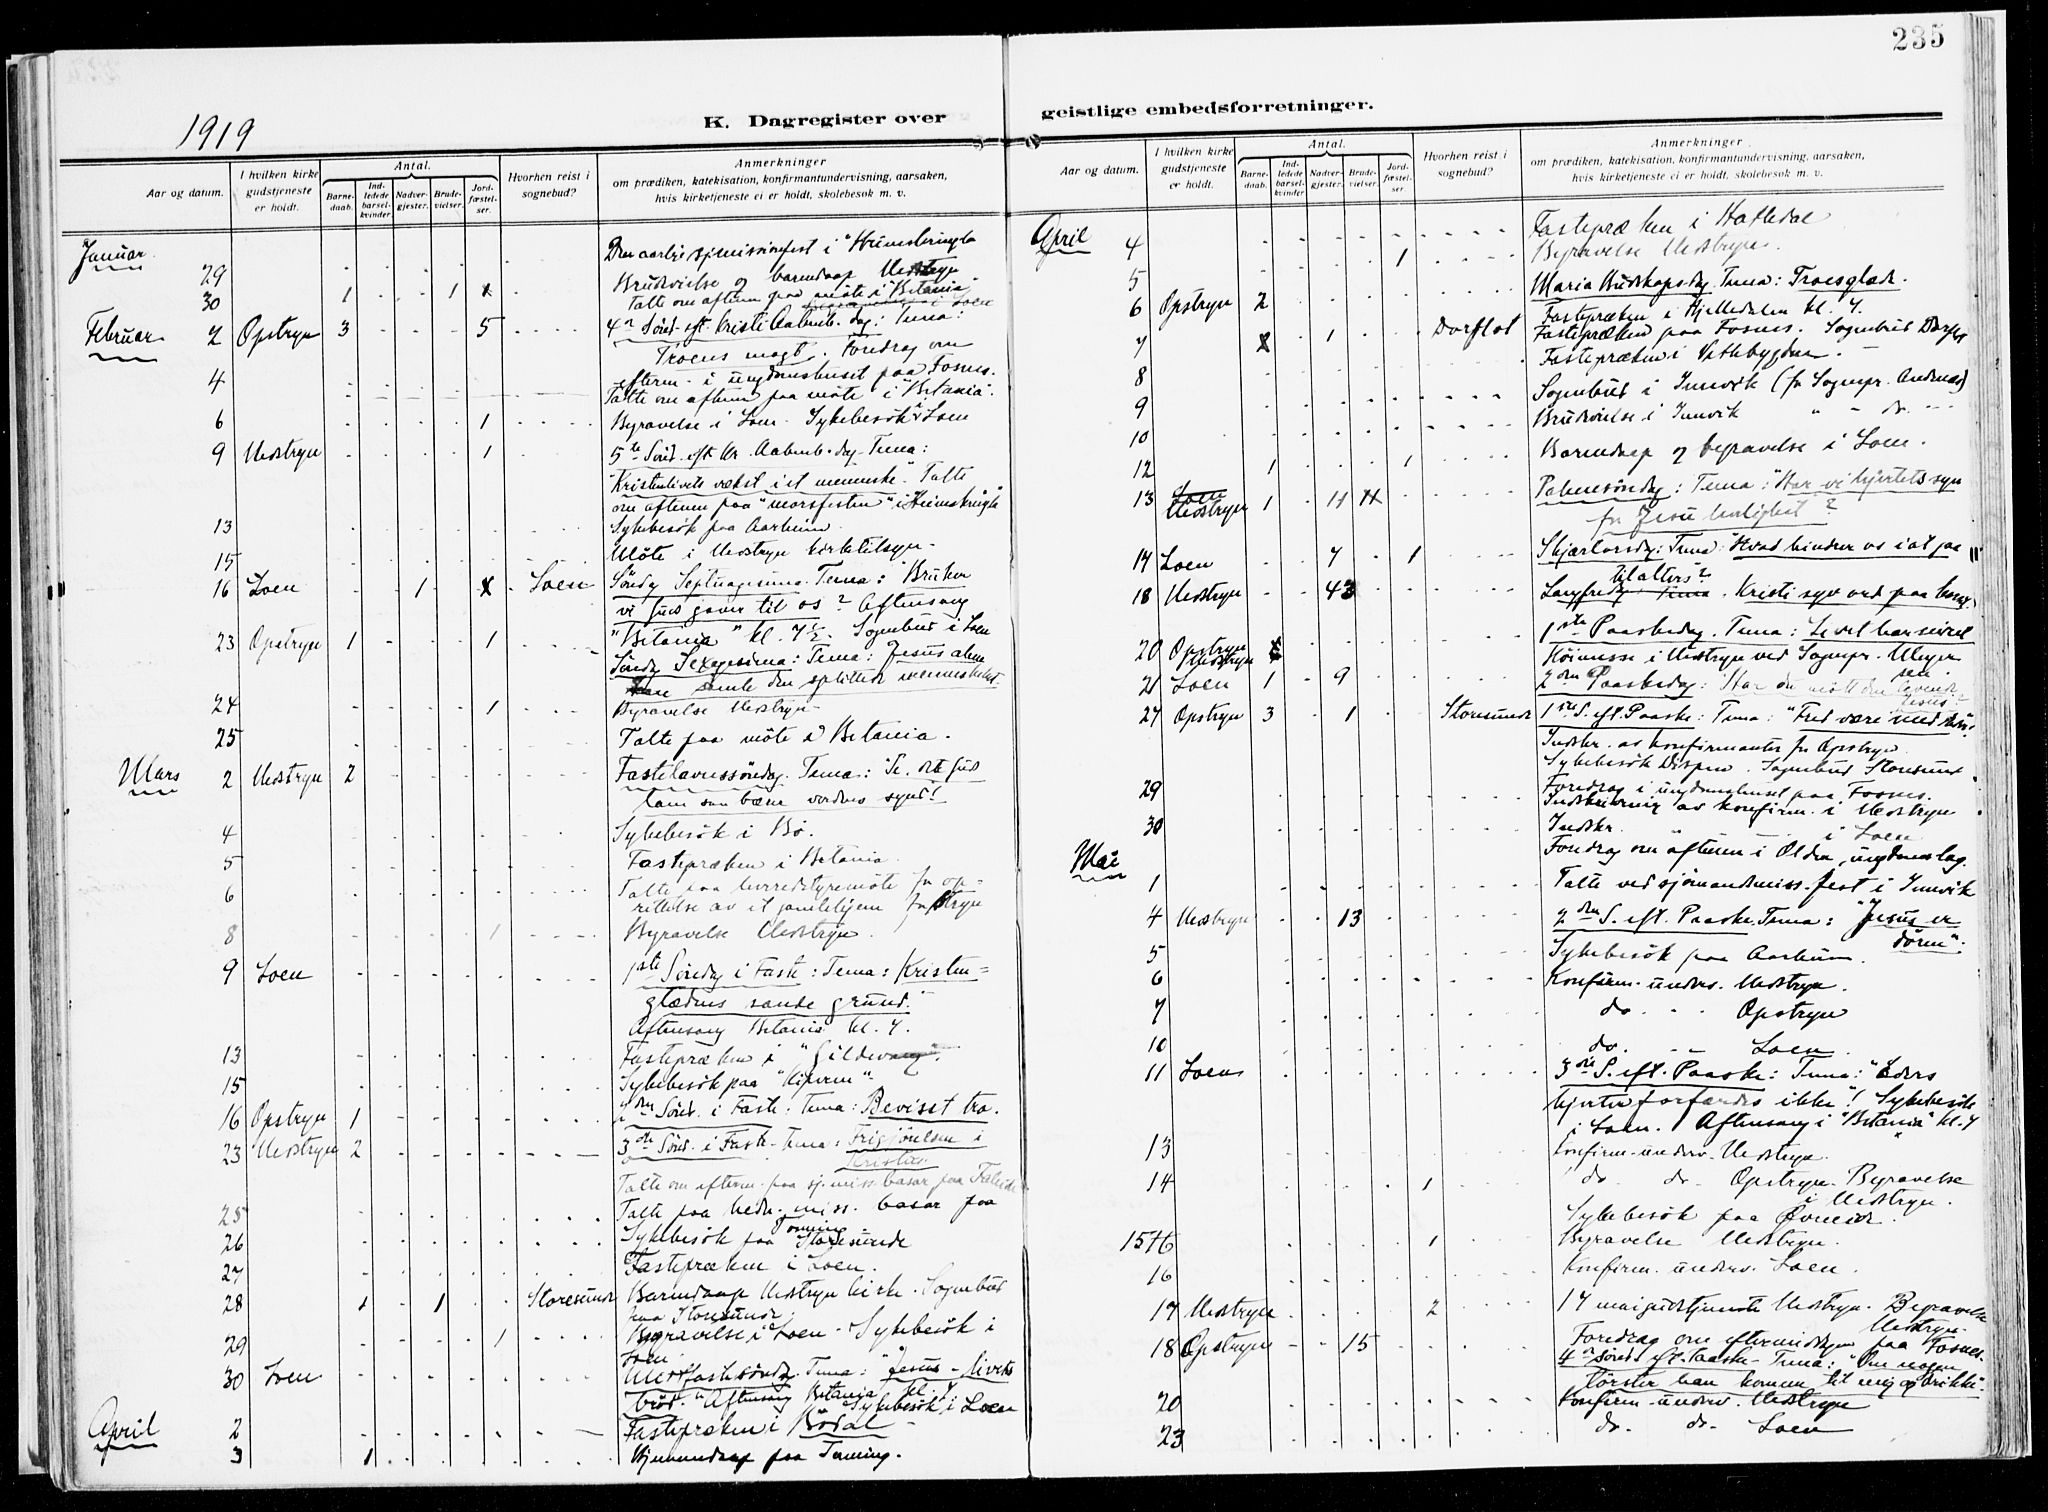 235
1919
K. Dagregister over
geistlige embedsforretninger.
Aar og datum.
I hvilken kirke gudstjeneste er holdt.
Antal.
Barnedaab.
Indledede barselkvinder
Nadvergjester.
Brudevielser.
Jordfæstelser.
Hvorhen reist i sognebud?
Anmerkninger
om prædiken, katekisation, konfirmantundervisning, aarsaken,
hvis kirketjeneste ei er holdt, skolebesøk m. v.
Januar
29 Den aarlige sjømissionsfest i "Heimskringla
30 1 1 Brudvielse og barnedaap Nedstryn
Talte om aftenen paa møte i "Betania
Februar 2 Opstryn 3 5 4de Sønd. eft. Kristi Aabenb. dag: Tema:
Troens magt. Foredrag om
4 efterm. i ungdomshuset paa Fosnes.
Talte om aftenen paa møte i "Betania".
6 1 Begravelse i Loen. Sykebesøk i Loen
9 Nedstryn 1 5te Sønd. eft. Kr. Aabenb. dag. Tema:
"Kristenlivets vækst i et menneske." Talte
om aftenen paa "morsfesten" i Heimskringla
13 Sykebesøk paa Aarheim
15 Møte i Nedstryn kirketilsyn.
16 Loen 1 Loen Søndag Septuagesima. Tema: Bruker
vi Guds gaver til os? Aftensang
"Betania" kl. 7½. Sognebud i Loen
23 Opstryn 1 1 Søndag Sexagesima: Tema: Jesus alene
kan samle den splittede menneskehet.
24 1 Begravelse Nedstryn
25 Talte paa møte i Betania.
Mars 2 Nedstryn 2 Fastelavnssøndag. Tema: Se det Guds
lam som bærer verdens synd!
4 Sykebesøk i Bø.
5 Fastepræken i Betania.
6 Talte paa herredstyremøte for op-
rettelse av et gamlehjem for Stryn
8 1 Begravelse Nedstryn.
9 Loen 1ste Søndag i Faste: Tema: Kristen-
glædens sande grund.
Aftensang Betania kl. 7.
13 Fastepræken i "Gildevang".
15 Sykebesøk paa
16 Opstryn 1 2den Sønd. i Faste: Tema: Bevisst tro.
23 Nedstryn 2 3die Sønd. i Faste. Tema: Frigjørelsen i
Kristus
Talte om efterm. paa sj. miss. basar paa Faleide
25 Talte paa hedn. miss. basar paa
Tonning
26 Sykebesøk paa Storesunde
27 Fastepræken i Loen.
28 1 1 Storesunde Barnedaap Nedstryn kirke. Sognebud
paa Storesunde.
29 1 Begravelse i Loen. Sykebesøk i
Loen
30 Loen Midtfastesøndag. Tema: "Jesus - livets
brød." Aftensang Betania kl. 7
April 2 Sykebesøk i Loen
Fastepræken i Bødal
3 1 Hjemmedaap paa Tonning.
April 4 Fastepræken i Hatledal
5 1 Begravelse Nedstryn.
6 Opstryn 2 Maria Budskapsdag. Tema: Troesglæde.
Fasteprækn i Hjelledalen kl. 7.
7 1 Dorflot Fasteprækn paa Fosnes. Sognebud Dorflot
8 Fasteprækn i Vettebygden.
9 Sognebud i Innvik (for Sognepr. Andenæs)
10 Brudevielse i Innvik " - do. - -
12 1 1 Barnedaap og begravelse i Loen.
13 Loen
Nedstryn 1 11 Palmesøndag: Tema: "Har vi hjertets syn
for Jesu herlighet?
17 Loen 7 1 Skjærtorsdag: Tema: Hvad hindrer os i at gaa
til alters?
18 Nedstryn 43 Langfredag. Tema. Kristi syv ord paa korset
20 Opstryn
Nedstryn 1ste Paaskedag. Tema: Livet har seiret
Høimesse i Nedstryn ved Sognepr. Meyer
21 Loen 1 9 2den Paaskedag: Har du møtt den levende
Jesus?
27 Opstryn 3 1 Storesunde 1ste S. eft. Paaske: Tema: "Fred være med
Indskr. av konfirmanter for Opstryn
Sykebesøk Dispen. Sognebud Storesunde
29 Foredrag i ungdomshuset paa Fosnes.
Indskrivning av konfirm. i Nedstryn
30 Indskr. " i Loen
Foredrag om aftenen i Olden ungdomslag.
Mai 1 Talte ved sjømandsmiss. fest i Innvik
4 Nedstryn 13 2den S. eft. Paaske. Tema: "Jesus er
døren".
5 Sykebesøk paa Aarheim.
6 Konfirm. underv. Nedstryn.
7 do. - - Opstryn
10 do. - - Loen.
11 Loen 3die S. eft. Paaske: Tema: "Eders
hjerter forfærdes ikke"! Sykebesøk
i Loen. Aftensang i "Betania" kl. 7
13 Konfirm. underv. Nedstryn.
14 1 do do. Opstryn. Begravelse
i Nedstryn.
Sykebesøk paa
15 1 Begravelse Nedstryn.
16 Konfirm. underv. Loen.
17 Nedstryn 2 17 maigudstjeneste Nedstryn. Begravelse
Nedstryn.
18 Opstryn 15 Foredrag om eftermiddagen paa Fosnes.
4de Sønd. eft. Paaske. Tema: "Om nogen
tørster han komme til mig og drikke".
20 Konfirm. underv. Nedstryn
23 do. do. Loen